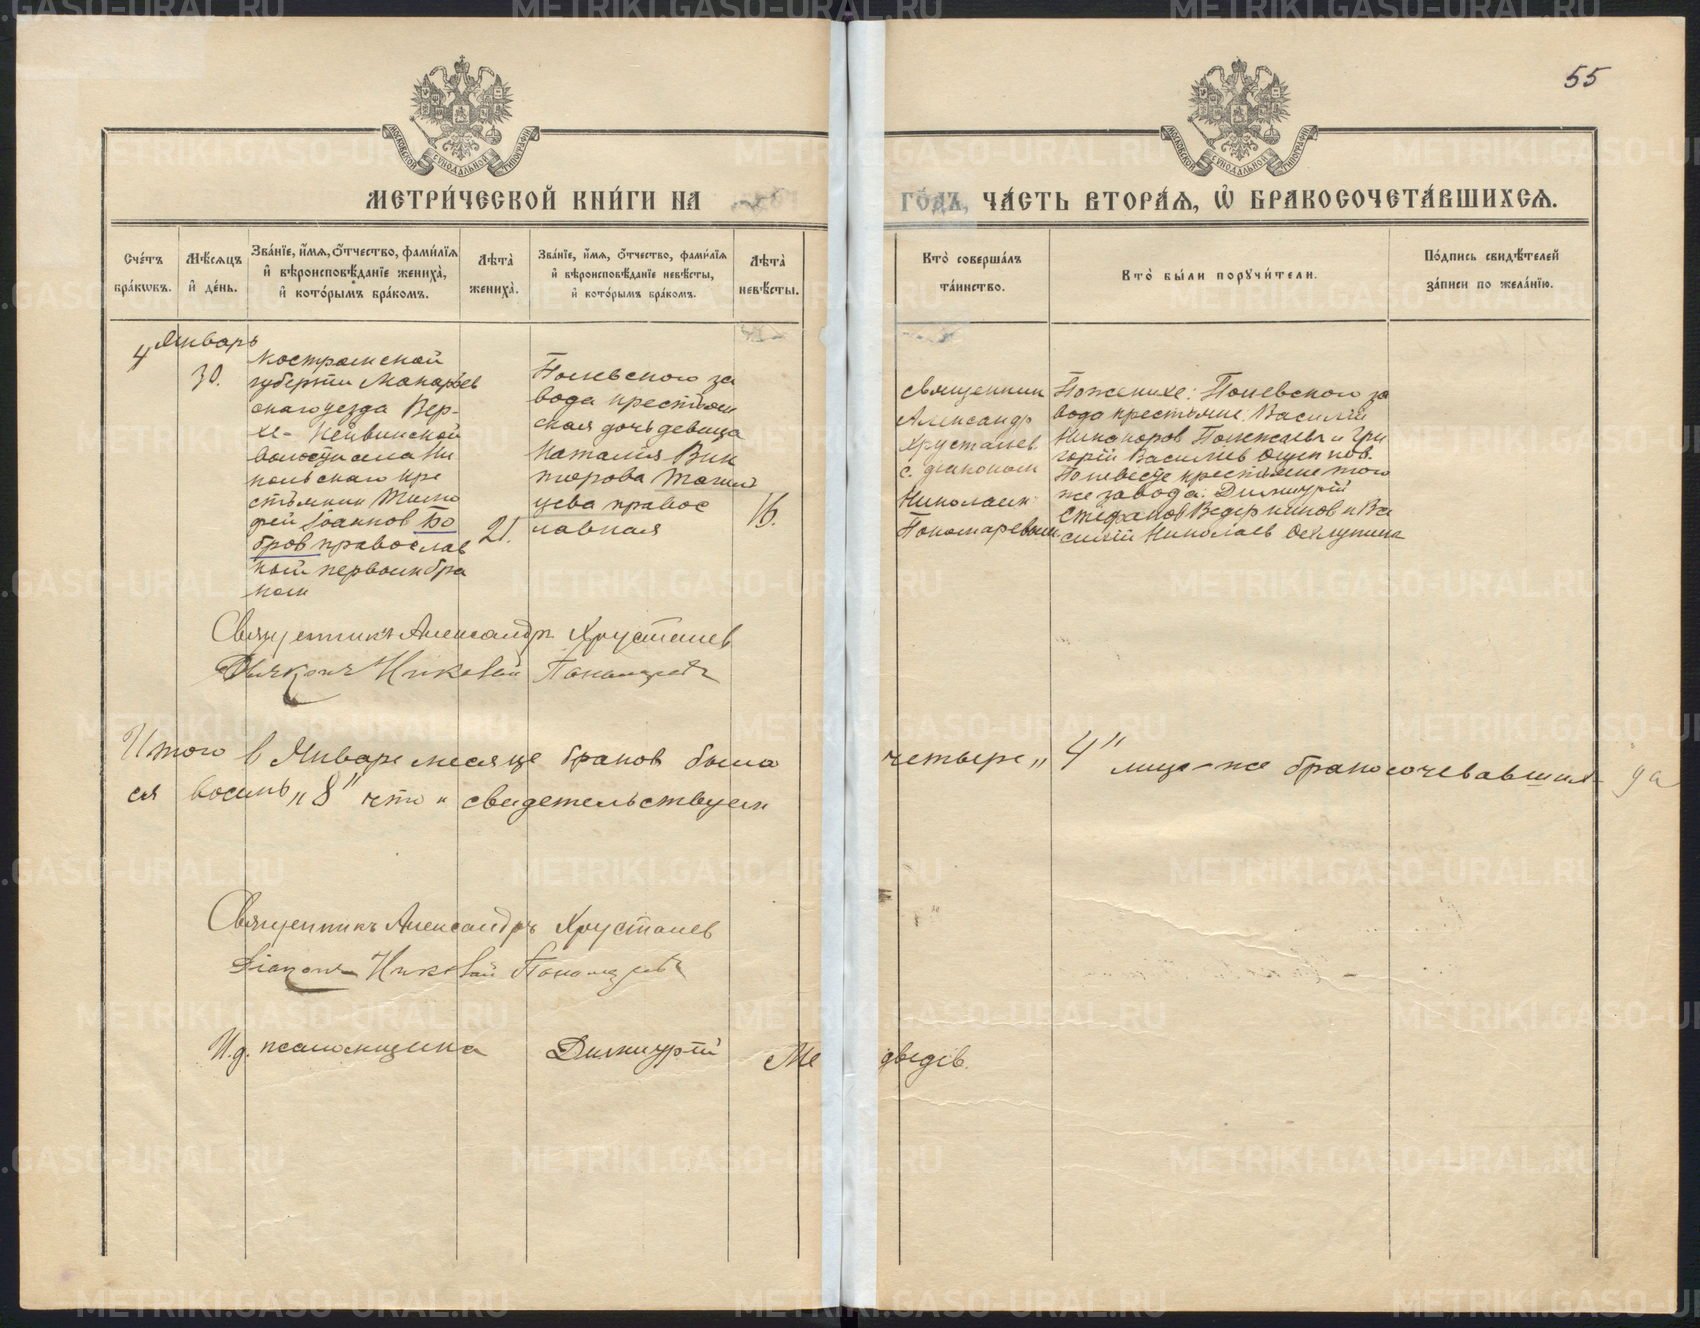 55
МЕТРИ́ЧЕСКОЙ КНИ́ГИ НА
ГО́ДЪ, ЧА́СТЬ ВТОРА́Я, Ѡ҆ БРАКОСОЧЕТА́ВШИХСЯ.
МОСКОВСКОЙ СѴНОДАЛЬНОЙ ТИПОГРАФІИ
МОСКОВСКОЙ СѴНОДАЛЬНОЙ ТИПОГРАФІИ
Сче́тъ бра́кѡвъ.
Мѣ́сяцъ и҆ де́нь.
Зва́нїе, и҆́мя, ѻ҆́тчество, фами́лїя
и҆ вѣроисповѣ́данїе жениха̀,
и҆ кото́рымъ бра́комъ.
Лѣ́та̀ жениха̀.
Зва́нїе, и҆́мя, ѻ҆́тчество, фами́лїя
и҆ вѣроисповѣ́данїе невѣ́сты,
и҆ кото́рымъ бра́комъ.
Лѣ́та̀ невѣ́сты.
Кто̀ соверша́лъ
та́инство.
Кто̀ бы́ли поручи́тели.
По́дпись свидѣ́телей
за́писи по жела́нїю.
4
Январь
30.
Костромской
губерти Макарьев
скаго уезда Вер-
волости села Ни
кольскаго кре
стьянин Тимо
фей Іоаннов Бо
бров православ
ный первым бра
ком
21.
Полевского за
вода крестьян
ская дочь девица
Наталия Вик
торова
цева правос
лавная
16.
священник
Александр
Хрусталев
с диаконом
Николаем
Пономаревым
По женихе: Полевского за
вода крестьяне: Василий
Никаноров и Гри
горий Васильев
По невесте крестьяне того
же завода: Димитрий
Стефанов Ведерников и Ва
силий Николаев
Священникъ Александр Хрусталев
Диаконъ Николай Пономаревъ
Итого в Январе месяце браков было четыре „4" лица-же бракосочевавшия
ся восемь „8" что и свидетельствуем
Священникъ Александръ Хрусталев
Діаконъ Николай Пономаревъ
И.д. псаломщика Димитрий Медведев.